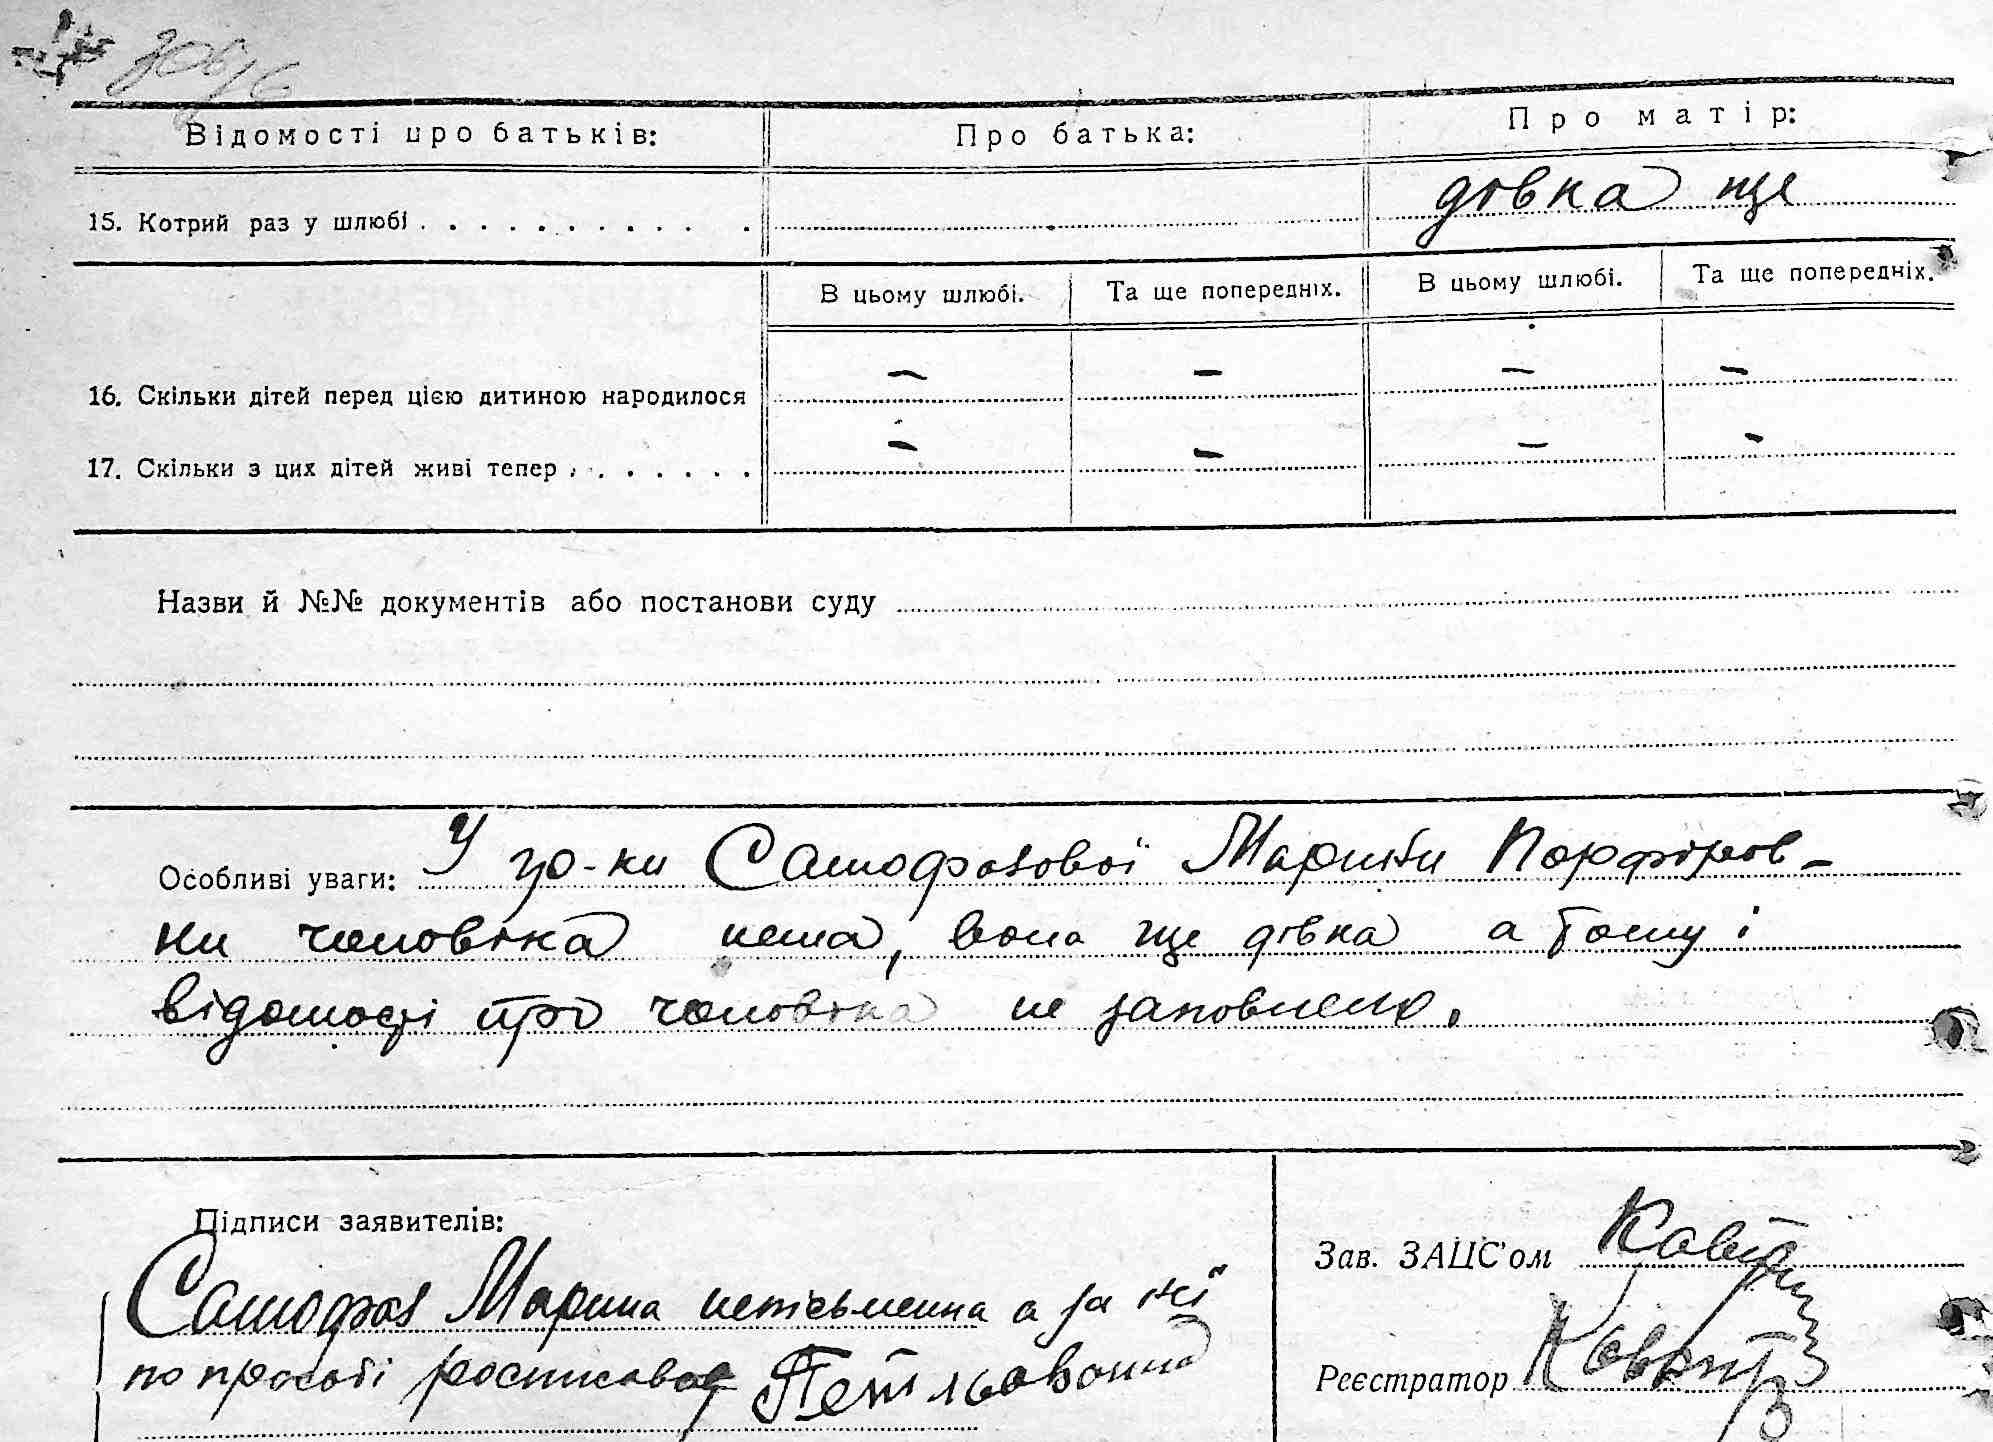 Відомості про батьків: Про батька: Про матір:
15. Котрий раз у шлюбі . . . . . . . . . . . дівка ще
В цьому шлюбі. Та ще попередніх. В цьому шлюбі. Та ще попередніх.
16. Скільки дітей перед цією дитиною народилося — — — —
17. Скільки з цих дітей живі тепер . . . . . . . — — — —
Назви й №№ документів або постанови суду
Особливі уваги: У гр-ки Самофазової Марини Порфіров-
ни чоловіка нема, вона ще дівка а тому і
відомості про чоловіка не заповнено.
Підписи заявителів:
Зав. ЗАЦС'ом
Марина неписьменна а за неї
по просьбі росписався
Реєстратор